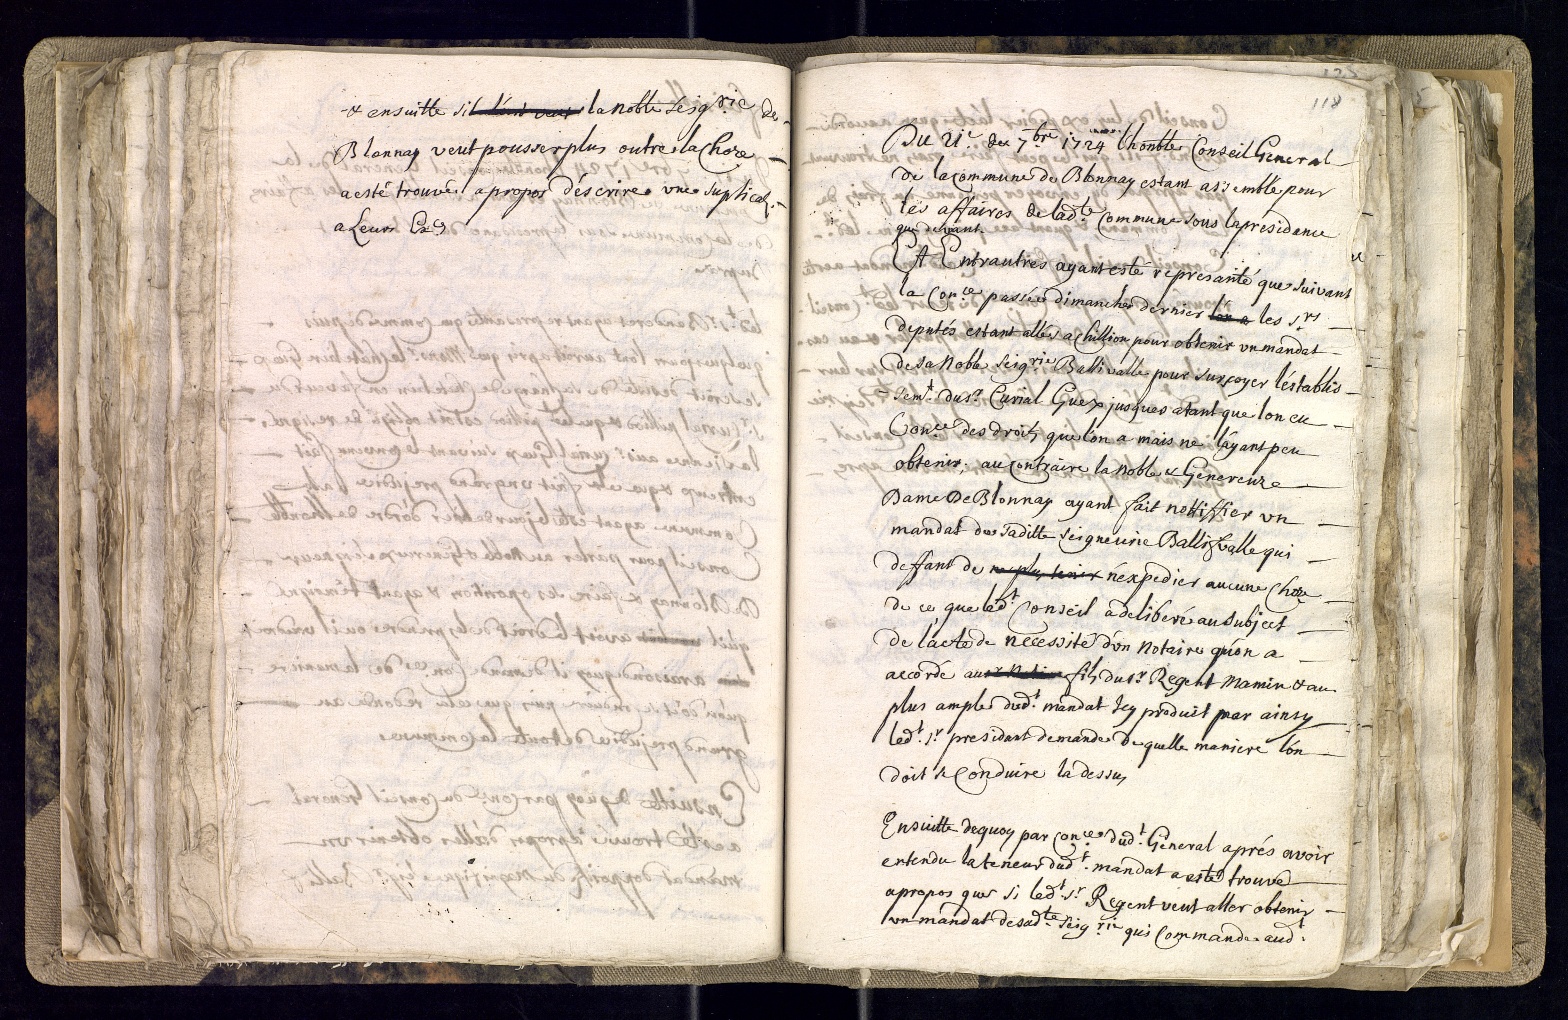 & ensuitte si la noble Seig.rie de
Blonnay veut pousser plus outre la Choze
a esté trouvé apropos déscrire une suplicat.
a Leurs Ex.ces
118
Du 21.e du 7.bre 1724 l'honble Conseil General
de la commune de Blonnay estant assemblé pour
les affaires de lad.te Commune sous la presidance
que devant.
Et Entrautres ayant esté represanté que suivant
la Con.ce passée dimanche dernier les s.rs
deputés estant allés a Chillion pour obtenir un mandat
de sa Noble Seig.rie Ballivalle pour surçoyer léstablis-
sem.t du s.r Curial Guex jusques atant que lon eu
Con.ce des droits que lon a mais ne layant peu
obtenir, au contraire la noble & Genereuze
Dame De Blonnay ayant fait nottiffier un
mandat de saditte Seigneurie Ballifvalle qui
deffant de ne plus tenir n'expedier aucune Choze
de ce que led.t Conseil a deliberé au Subject
de lacte de necessité dun Notaire quon a
accordé au fils du s.r Regent Mamin & au
plus ample dud.t mandat Icy produit par ainsy
led.t s.r presidant demande de quelle maniere lon
doit se Conduire la dessus
Ensuitte dequoy par Con.ce dud.t General aprés avoir
entendu la teneur dud.t mandat a esté trouvé
apropos que si led.t s.r Regent veut aller obtenir
un mandat de sad.te Seig.rie qui Commande aud.t